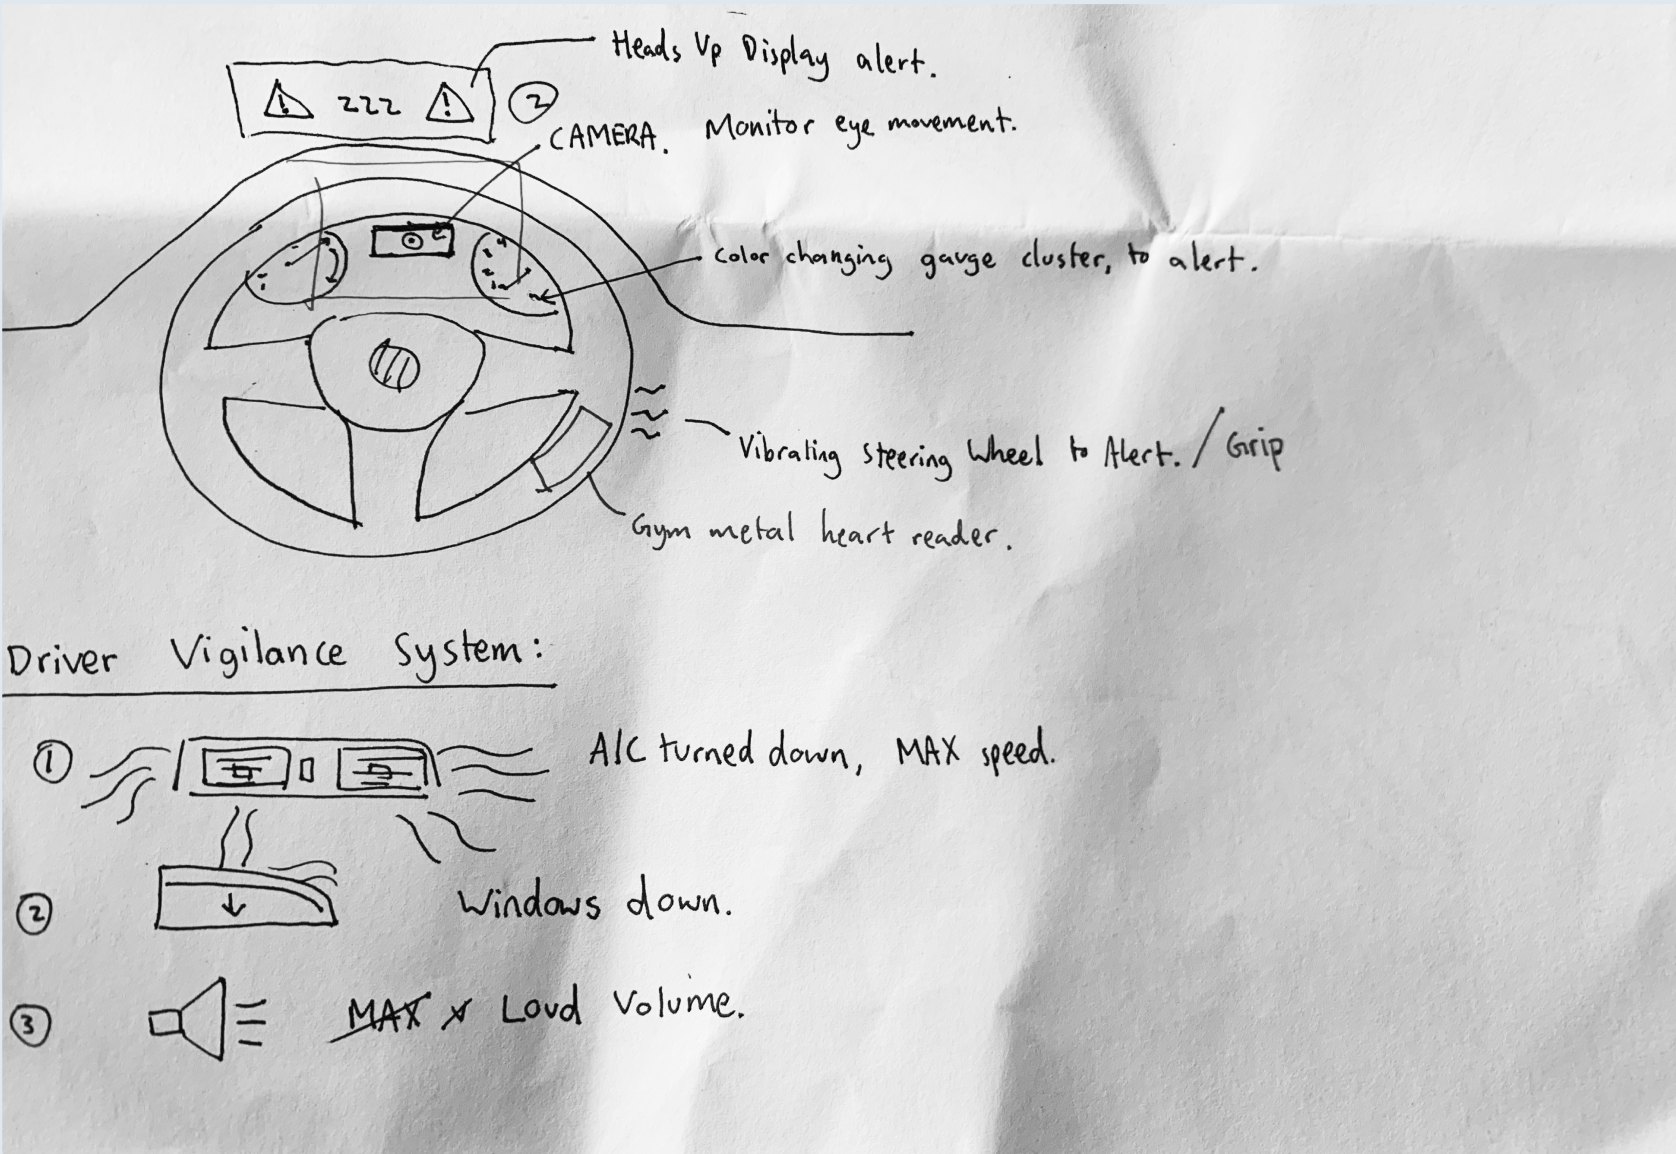 Heads Up Display alert.
! zzz ! 2
CAMERA. Monitor eye movement.
Color changing gauge cluster, to alert.
Vibrating Steering Wheel to Alert. / Grip
Gym metal heart reader.
Driver Vigilance System:
1 A/C turned down, MAX speed.
2 Windows down.
3 MAX Loud Volume.